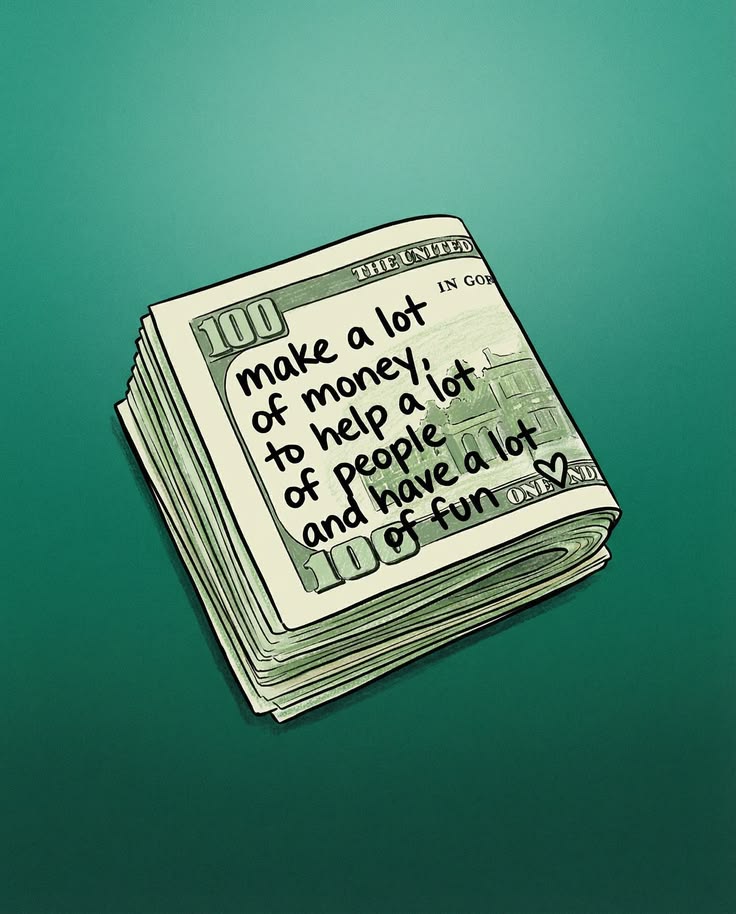 THE UNITED
IN GO
100
make a lot
of money,
to help a lot
of people
and have a lot
of fun ♡
ONE
100